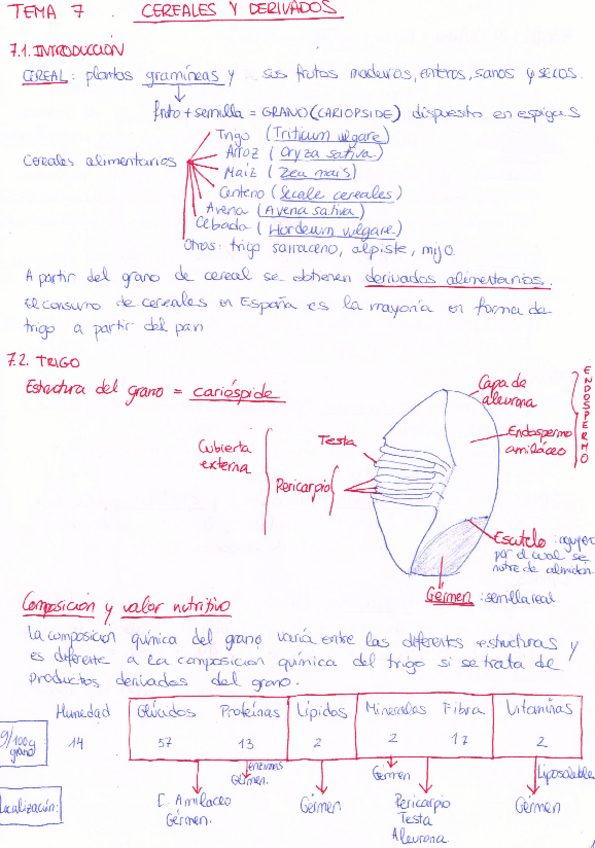 TEMA 7. CEREALES Y DERIVADOS
7.1. INTRODUCCIÓN
CEREAL: plantas gramíneas y sus frutos maduros, enteros, sanos y secos.
fruto + semilla = GRANO (CARIOPSIDE) dispuesto en espigas
Cereales alimentarios
Trigo (Triticum vulgare)
Arroz (Oryza sativa)
Maíz (Zea mais)
Centeno (Secale cereales)
Avena (Avena sativa)
Cebada (Hordeum vulgare)
Otros: trigo sarraceno, alpiste, mijo.
A partir del grano de cereal se obtienen derivados alimentarios.
El consumo de cereales en España es la mayoría en forma de
trigo a partir del pan
7.2. TRIGO
Estructura del grano = cariópside
Cubierta
externa
Testa
Pericarpio
Capa de
aleurona
Endospermo
amiláceo
ENDOSPERMO
Escutelo: agujero
por el cual se
nutre de almidón.
Gérmen: semilla real
Composición y valor nutritivo
La composicion química del grano varía entre las diferentes estructuras y
es diferente a la composicion química del trigo si se trata de
productos derivados del grano.
Humedad Glúcidos Proteínas Lípidos Minerales Fibra Vitaminas
g/100g
grano
14 57 13 2 2 17 2
Localización:
E. Amilaceo
Gérmen.
enzimas
Gérmen.
Gérmen
Gérmen
Pericarpio
Testa
Aleurona.
Liposoluble
Gérmen